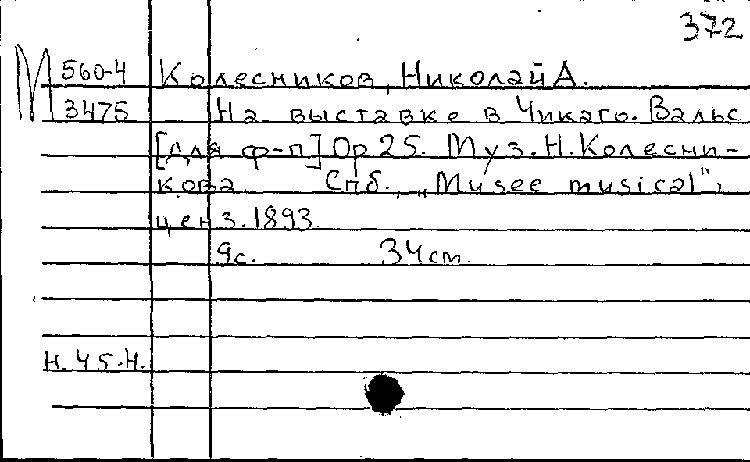 372
М 560-4 Колесников, Николай А.
3475 На выставке в Чикаго. Вальс
[для ф-п] Op 25. Муз. Н. Колесни-
кова Спб., „Musee musical",
ценз. 1893.
9с. 34см.
Н. 45.Н.